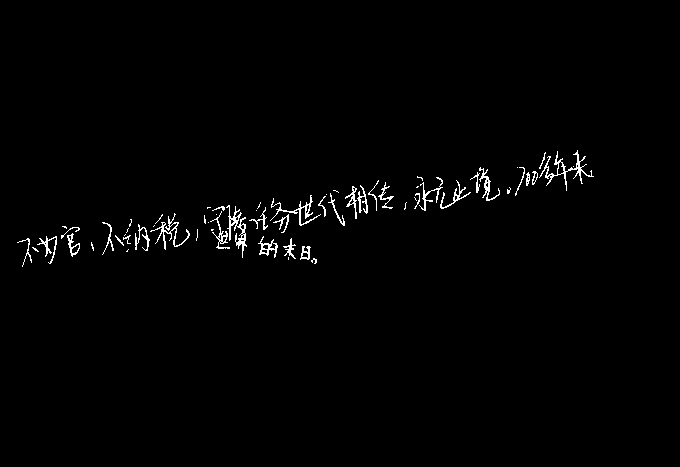 不为官、不纳税,守陵任务世代相传,永无止境。700多年来
的末日。